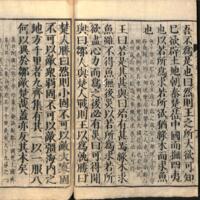 吾不為是也曰然則王之所大欲可知
已欲辟土地朝秦楚莅中國而撫四夷
也以若所為求若所欲猶緣木而求魚也
王曰若是其甚與曰殆有甚焉緣木求
魚雖不得魚無後災以若所為求若所
欲盡心力而為之後必有災曰可得聞
與曰鄒人與楚人戰則王以為孰勝曰
楚人勝曰然則小固不可以敵大寡固
不可以敵眾弱固不可以敵彊海內之
地方千里者九齊集有其一以一服八
何以異於鄒敵楚哉蓋亦反其本矣